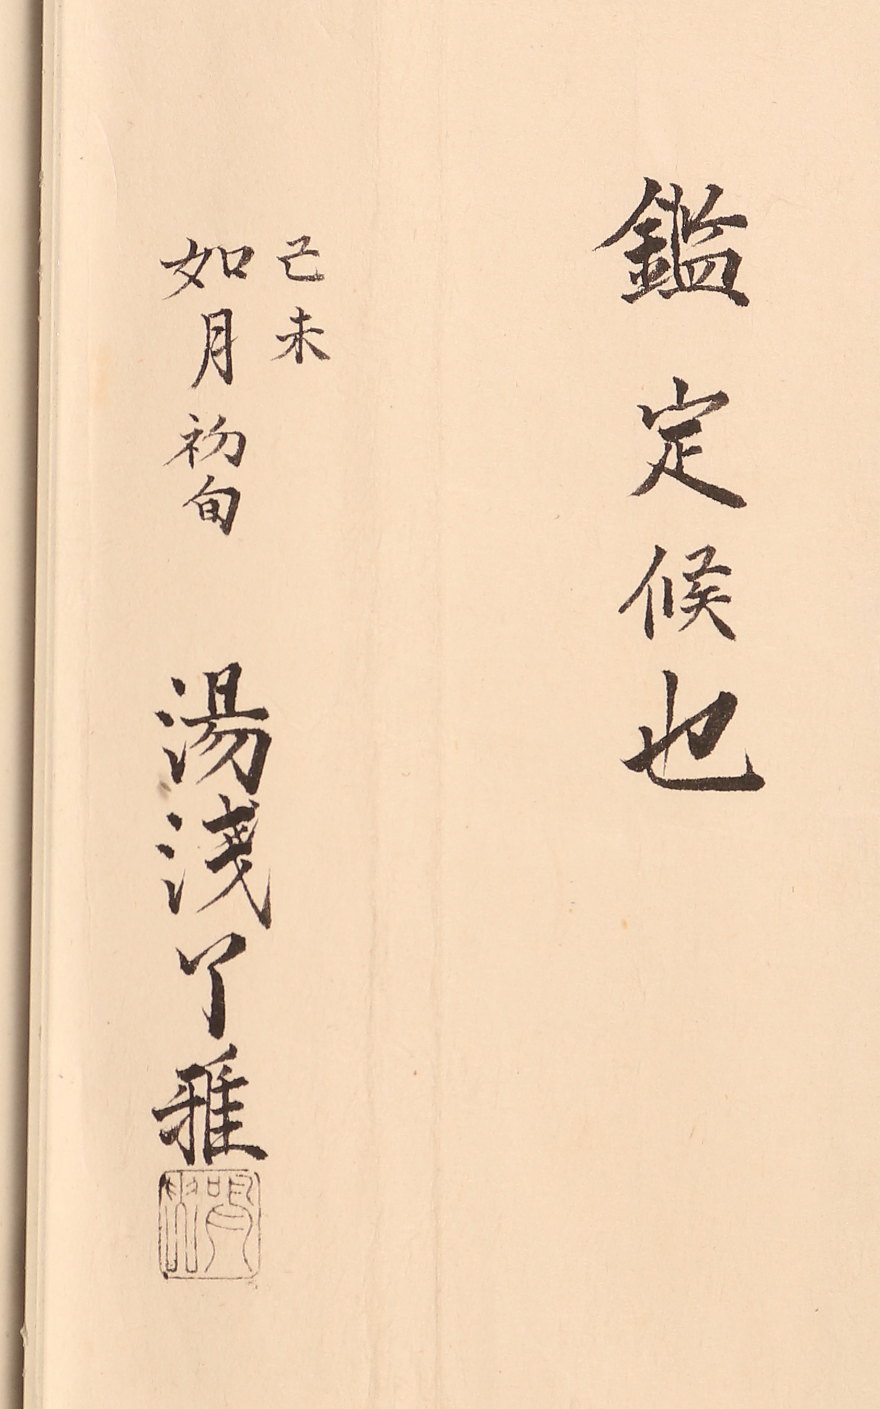 鑑定候也
己未
如月初旬
湯淺了雅